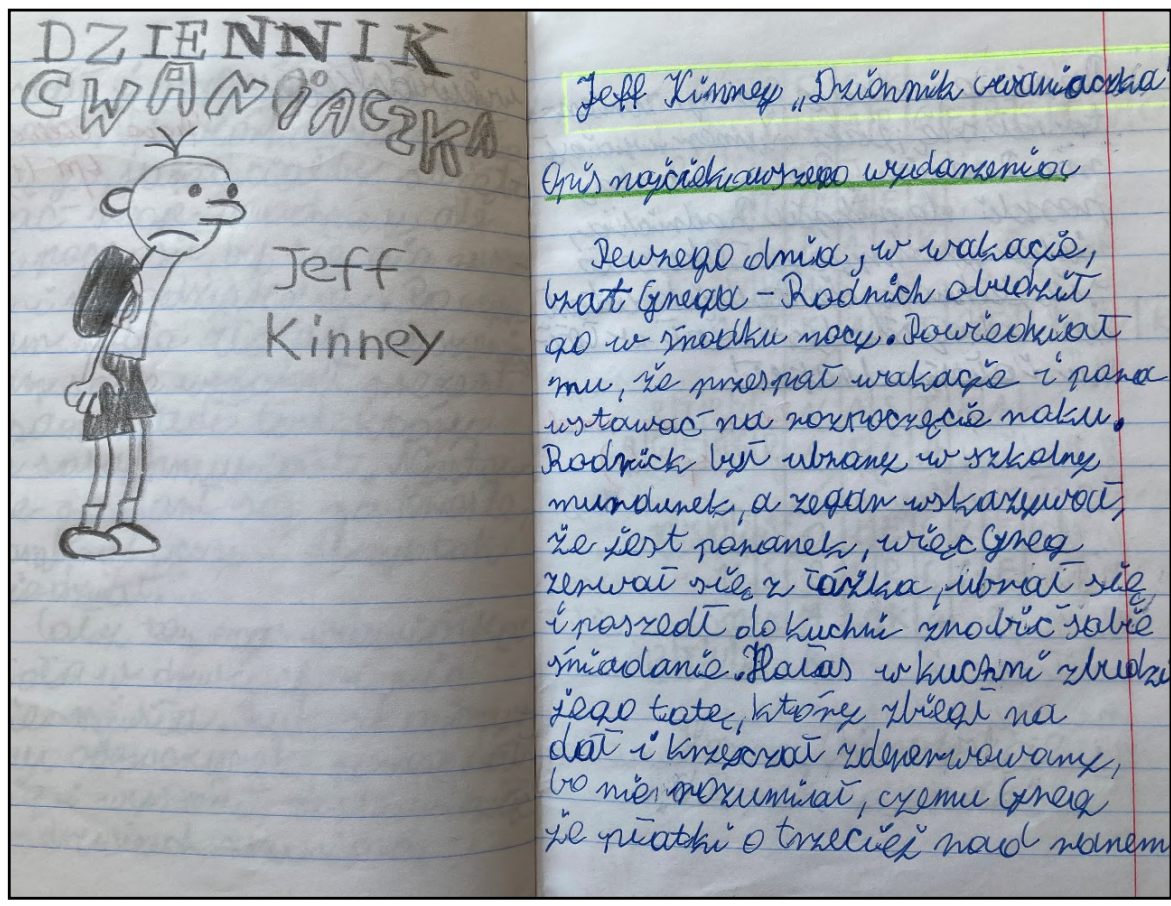 DZIENNIK
CWANIACZKA
Jeff
Kinney
Jeff Kinney „Dziennik cwaniaczka"
Opis najciekawszego wydarzenia
Pewnego dnia, w wakacje,
brat Grega - Rodrick obudził
go w środku nocy. Powiedział
mu, że przespał wakacje i pora
wstawać na rozpoczęcie roku.
Rodrick był ubrany w szkolny
mundurek, a zegar wskazywał,
że jest poranek, więc Greg
zerwał się z łóżka, ubrał się
i poszedł do kuchni zrobić sobie
śniadanie. Hałas w kuchni zbudzi
jego tatę, który zbiegł na
dół i krzyczał zdenerwowany,
bo nie rozumiał, czemu Greg
je płatki o trzeciej nad ranem